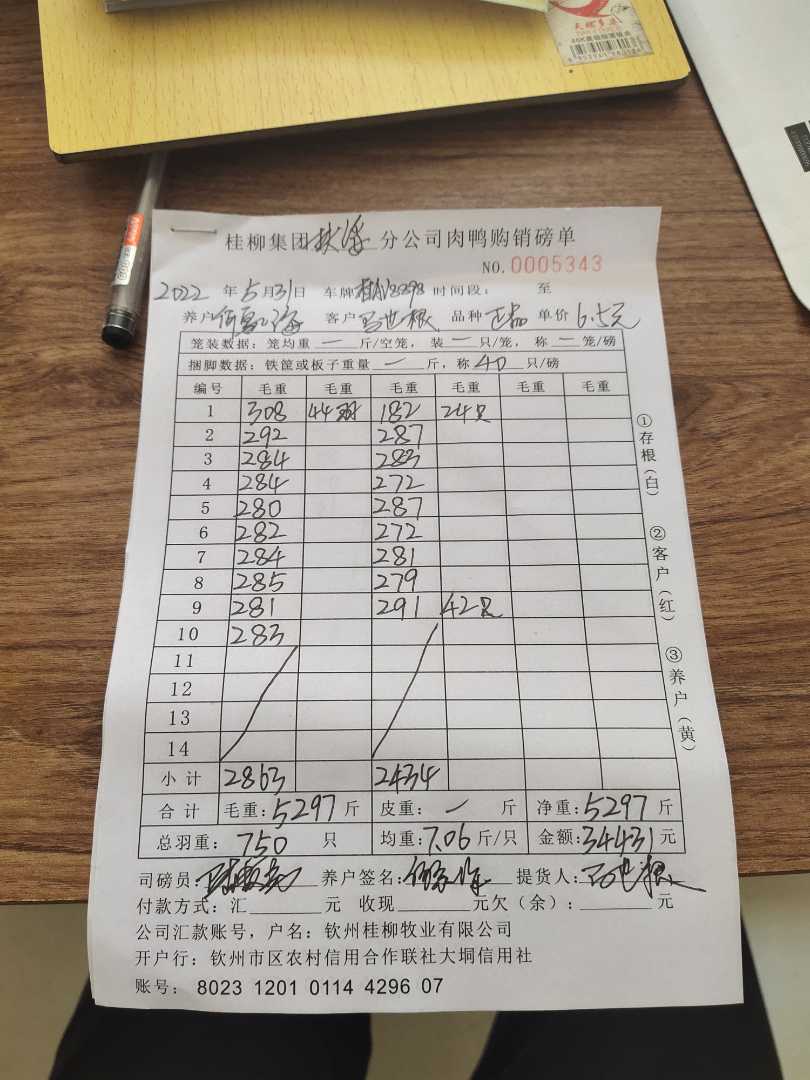 桂柳集团 分公司肉鸭购销磅单
NO.0005343
2022年5月31日 车牌 时间段： 至
养户 客户马世根 品种正品 单价6.5元
笼装数据：笼均重一斤/空笼，装一只/笼，称一笼/磅
捆脚数据：铁筐或板子重量一斤，称40只/磅
编号 毛重 毛重 毛重 毛重 毛重 毛重
1 308 44羽 182 24只
2 292 287
3 284 283
4 284 272
5 280 287
6 282 272
7 284 281
8 285 279
9 281 291 42只
10 283
11
12
13
14
小计 2863 2434
合计 毛重：5297斤 皮重：一斤 净重：5297斤
总羽重：750只 均重：7.06斤/只 金额：34431元
司磅员： 养户签名： 提货人：马世根
付款方式：汇 元 收现 元欠（余）： 元
公司汇款账号，户名：钦州桂柳牧业有限公司
开户行：钦州市区农村信用合作联社大垌信用社
账号：8023 1201 0114 4296 07
①存根（白）
②客户（红）
③养户（黄）